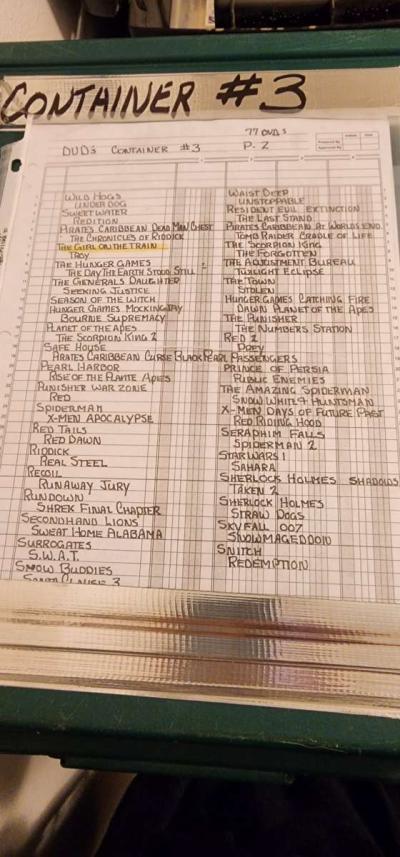 CONTAINER #3
77 DVD's
DVD's CONTAINER #3 P. 2
WILD HOGS
UNDER DOG
SWEETWATER
REDITION
PIRATES CARIBBEAN DEAD MAN CHEST
THE CHRONICLES OF RIDDICK
THE GIRL ON THE TRAIN
TROY
THE HUNGER GAMES
THE DAY THE EARTH STOOD STILL
THE GENERALS DAUGHTER
SEEKING JUSTICE
SEASON OF THE WITCH
HUNGER GAMES MOCKINGJAY
BOURNE SUPREMACY
PLANET OF THE APES
THE SCORPION KING 2
SAFE HOUSE
PIRATES CARIBBEAN CURSE BLACK PEARL
PEARL HARBOR
RISE OF THE PLANTE APES
PUNISHER WAR ZONE
RED
SPIDERMAN
X-MEN APOCALYPSE
RED TAILS
RED DAWN
RIDDICK
REAL STEEL
RECOIL
RUNAWAY JURY
RUNDOWN
SHREK FINAL CHAPTER
SECONDHAND LIONS
SWEAT HOME ALABAMA
SURROGATES
S.W.A.T.
SNOW BUDDIES
SANTA CLAUSE 3
WAIST DEEP
UNSTOPPABLE
RESIDENT EVIL EXTINCTION
THE LAST STAND
PIRATES CARIBBEAN AT WORLDS END
TOMB RAIDER CRADLE OF LIFE
THE SCORPION KING
THE FORGOTTEN
THE ADJUSTMENT BUREAU
TWILIGHT ECLIPSE
THE TOWN
STOLEN
HUNGER GAMES CATCHING FIRE
DAWN PLANET OF THE APES
THE PUNISHER
THE NUMBERS STATION
RED 2
PREY
PASSENGERS
PRINCE OF PERSIA
PUBLIC ENEMIES
THE AMAZING SPIDERMAN
SNOW WHITE & HUNTSMAN
X-MEN DAYS OF FUTURE PAST
RED RIDING HOOD
SERAPHIM FALLS
SPIDERMAN 2
STAR WARS I
SAHARA
SHERLOCK HOLMES SHADOWS
TAKEN 2
SHERLOCK HOLMES
STRAW DOGS
SKYFALL 007
SNOWMAGEDDON
SNITCH
REDEMPTION